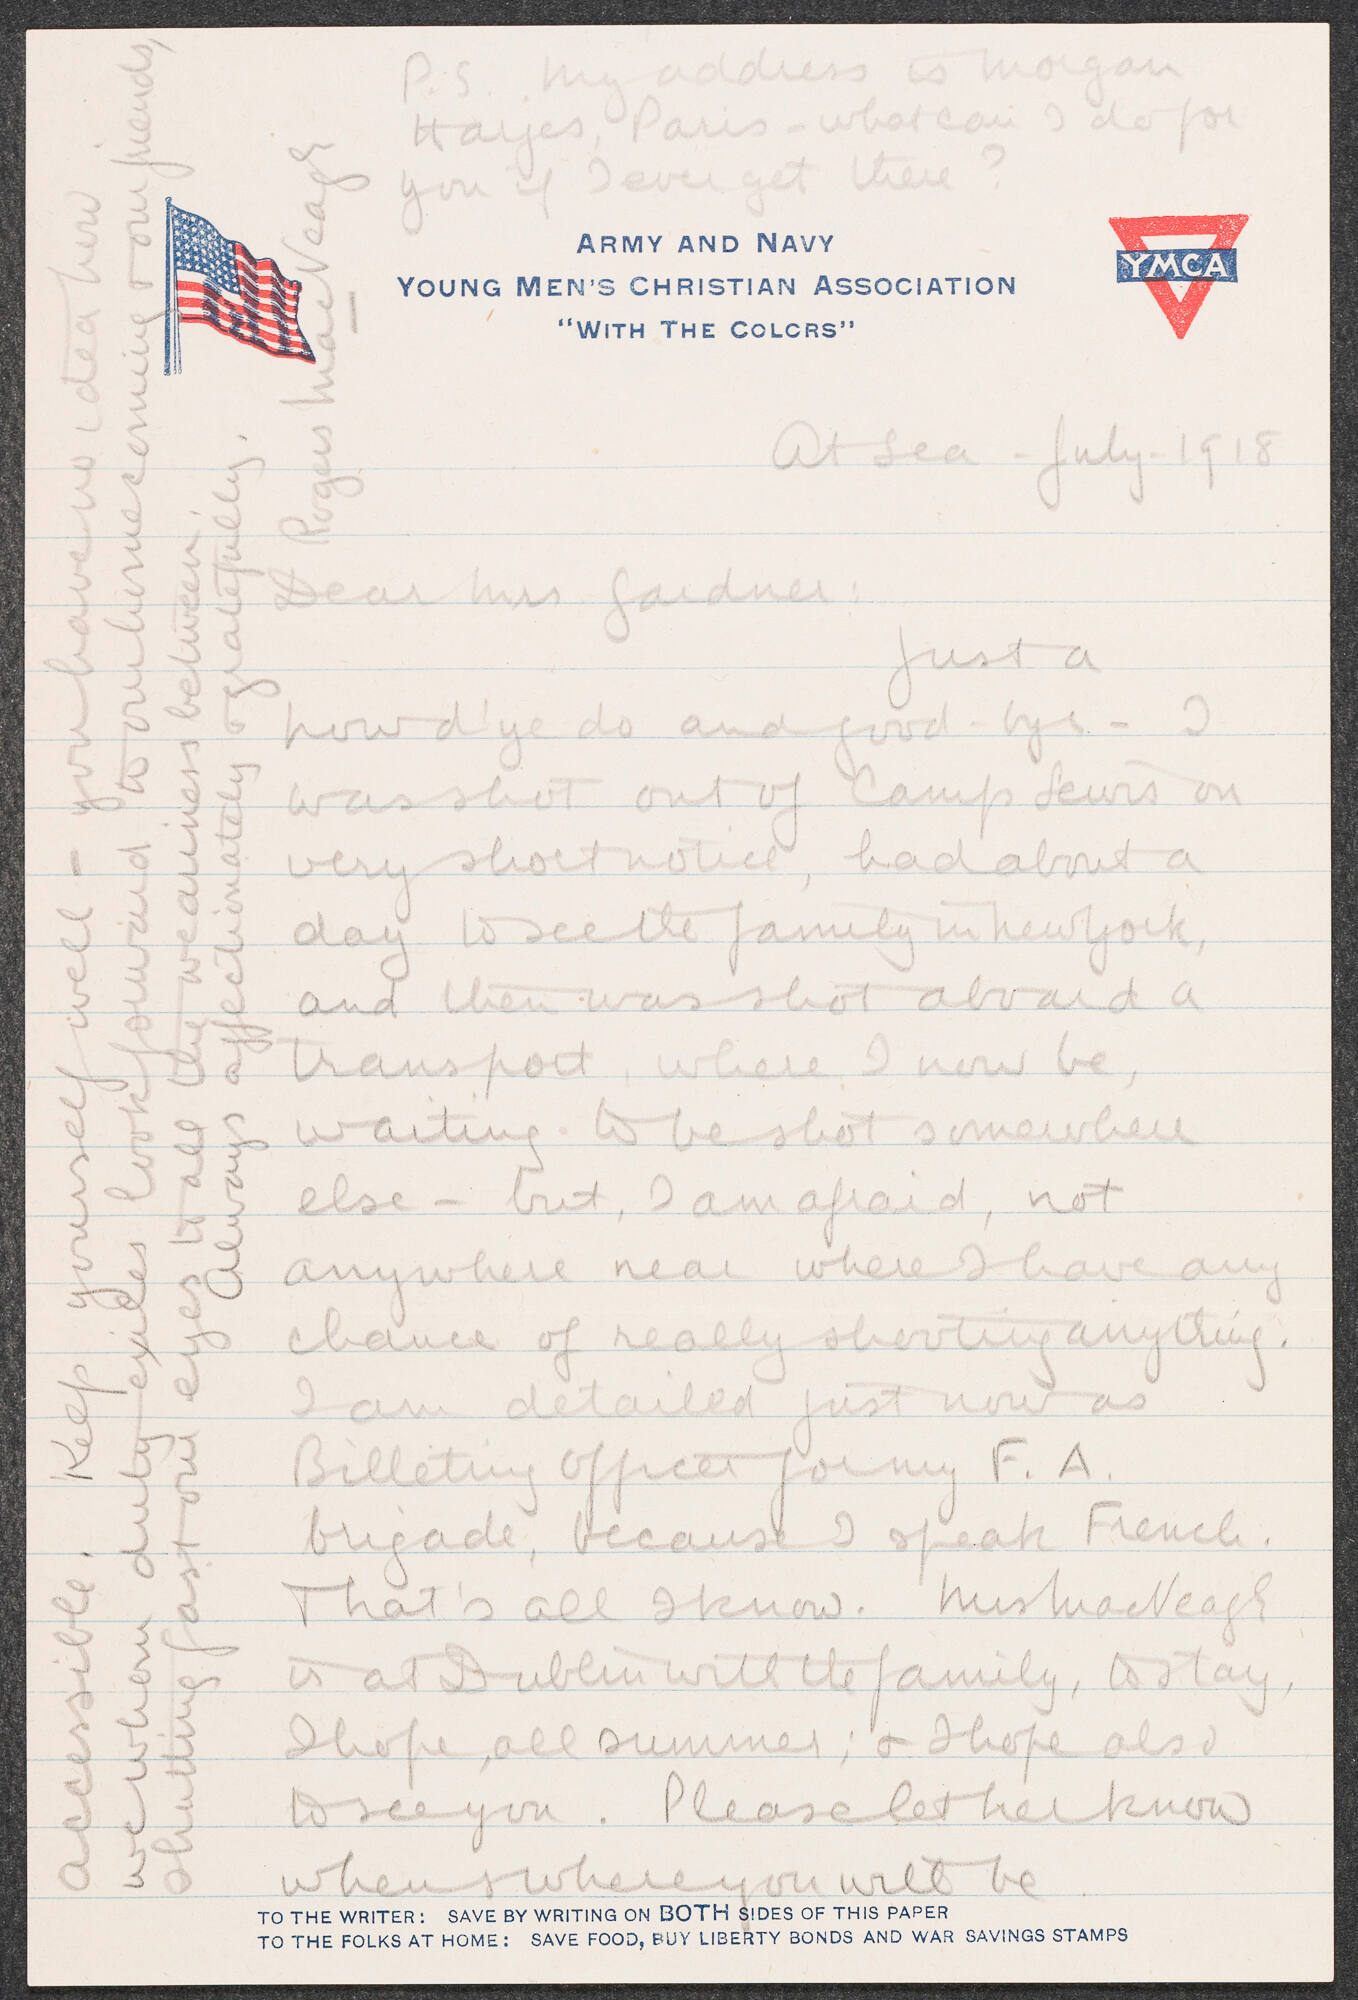 P.S. My address is Morgan
Harjes, Paris - what can I do for
you if I ever get there?
ARMY AND NAVY
YOUNG MEN'S CHRISTIAN ASSOCIATION
"WITH THE COLORS"
YMCA
At sea - July - 1918
Dear Mrs. Gardner:
Just a
how d'ye do and good-bye - I
was shot out of Camp Lewis on
very short notice, had about a
day to see the family in New York,
and then was shot aboard a
transport, where I now be,
waiting to be shot somewhere
else - but, I am afraid, not
anywhere near where I have any
chance of really shooting anything.
I am detailed just now as
Billeting Officer for my F. A.
brigade, because I speak French.
That's all I know. Mrs MacVeagh
is at Dublin with the family, to stay,
I hope, all summer; & I hope also
to see you. Please let her know
when & where you will be
accessible. Keep yourself well - you have no idea how
we whom duty exiles look forward to our homecoming & our friends,
shutting fast our eyes to all the weariness between.
Always affectionately & gratefully.
Rogers MacVeagh
TO THE WRITER: SAVE BY WRITING ON BOTH SIDES OF THIS PAPER
TO THE FOLKS AT HOME: SAVE FOOD, BUY LIBERTY BONDS AND WAR SAVINGS STAMPS